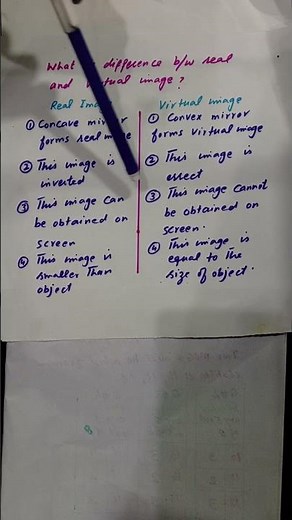 What is difference b/w real
and virtual image?
Real Image
① Concave mirror
forms real image
② This image is
inverted
③ This image can
be obtained on
screen
④ This image is
smaller than
object
Virtual image
① Convex mirror
forms virtual image
② This image is
erect
③ This image cannot
be obtained on
screen.
④ This image is
equal to the
size of object.